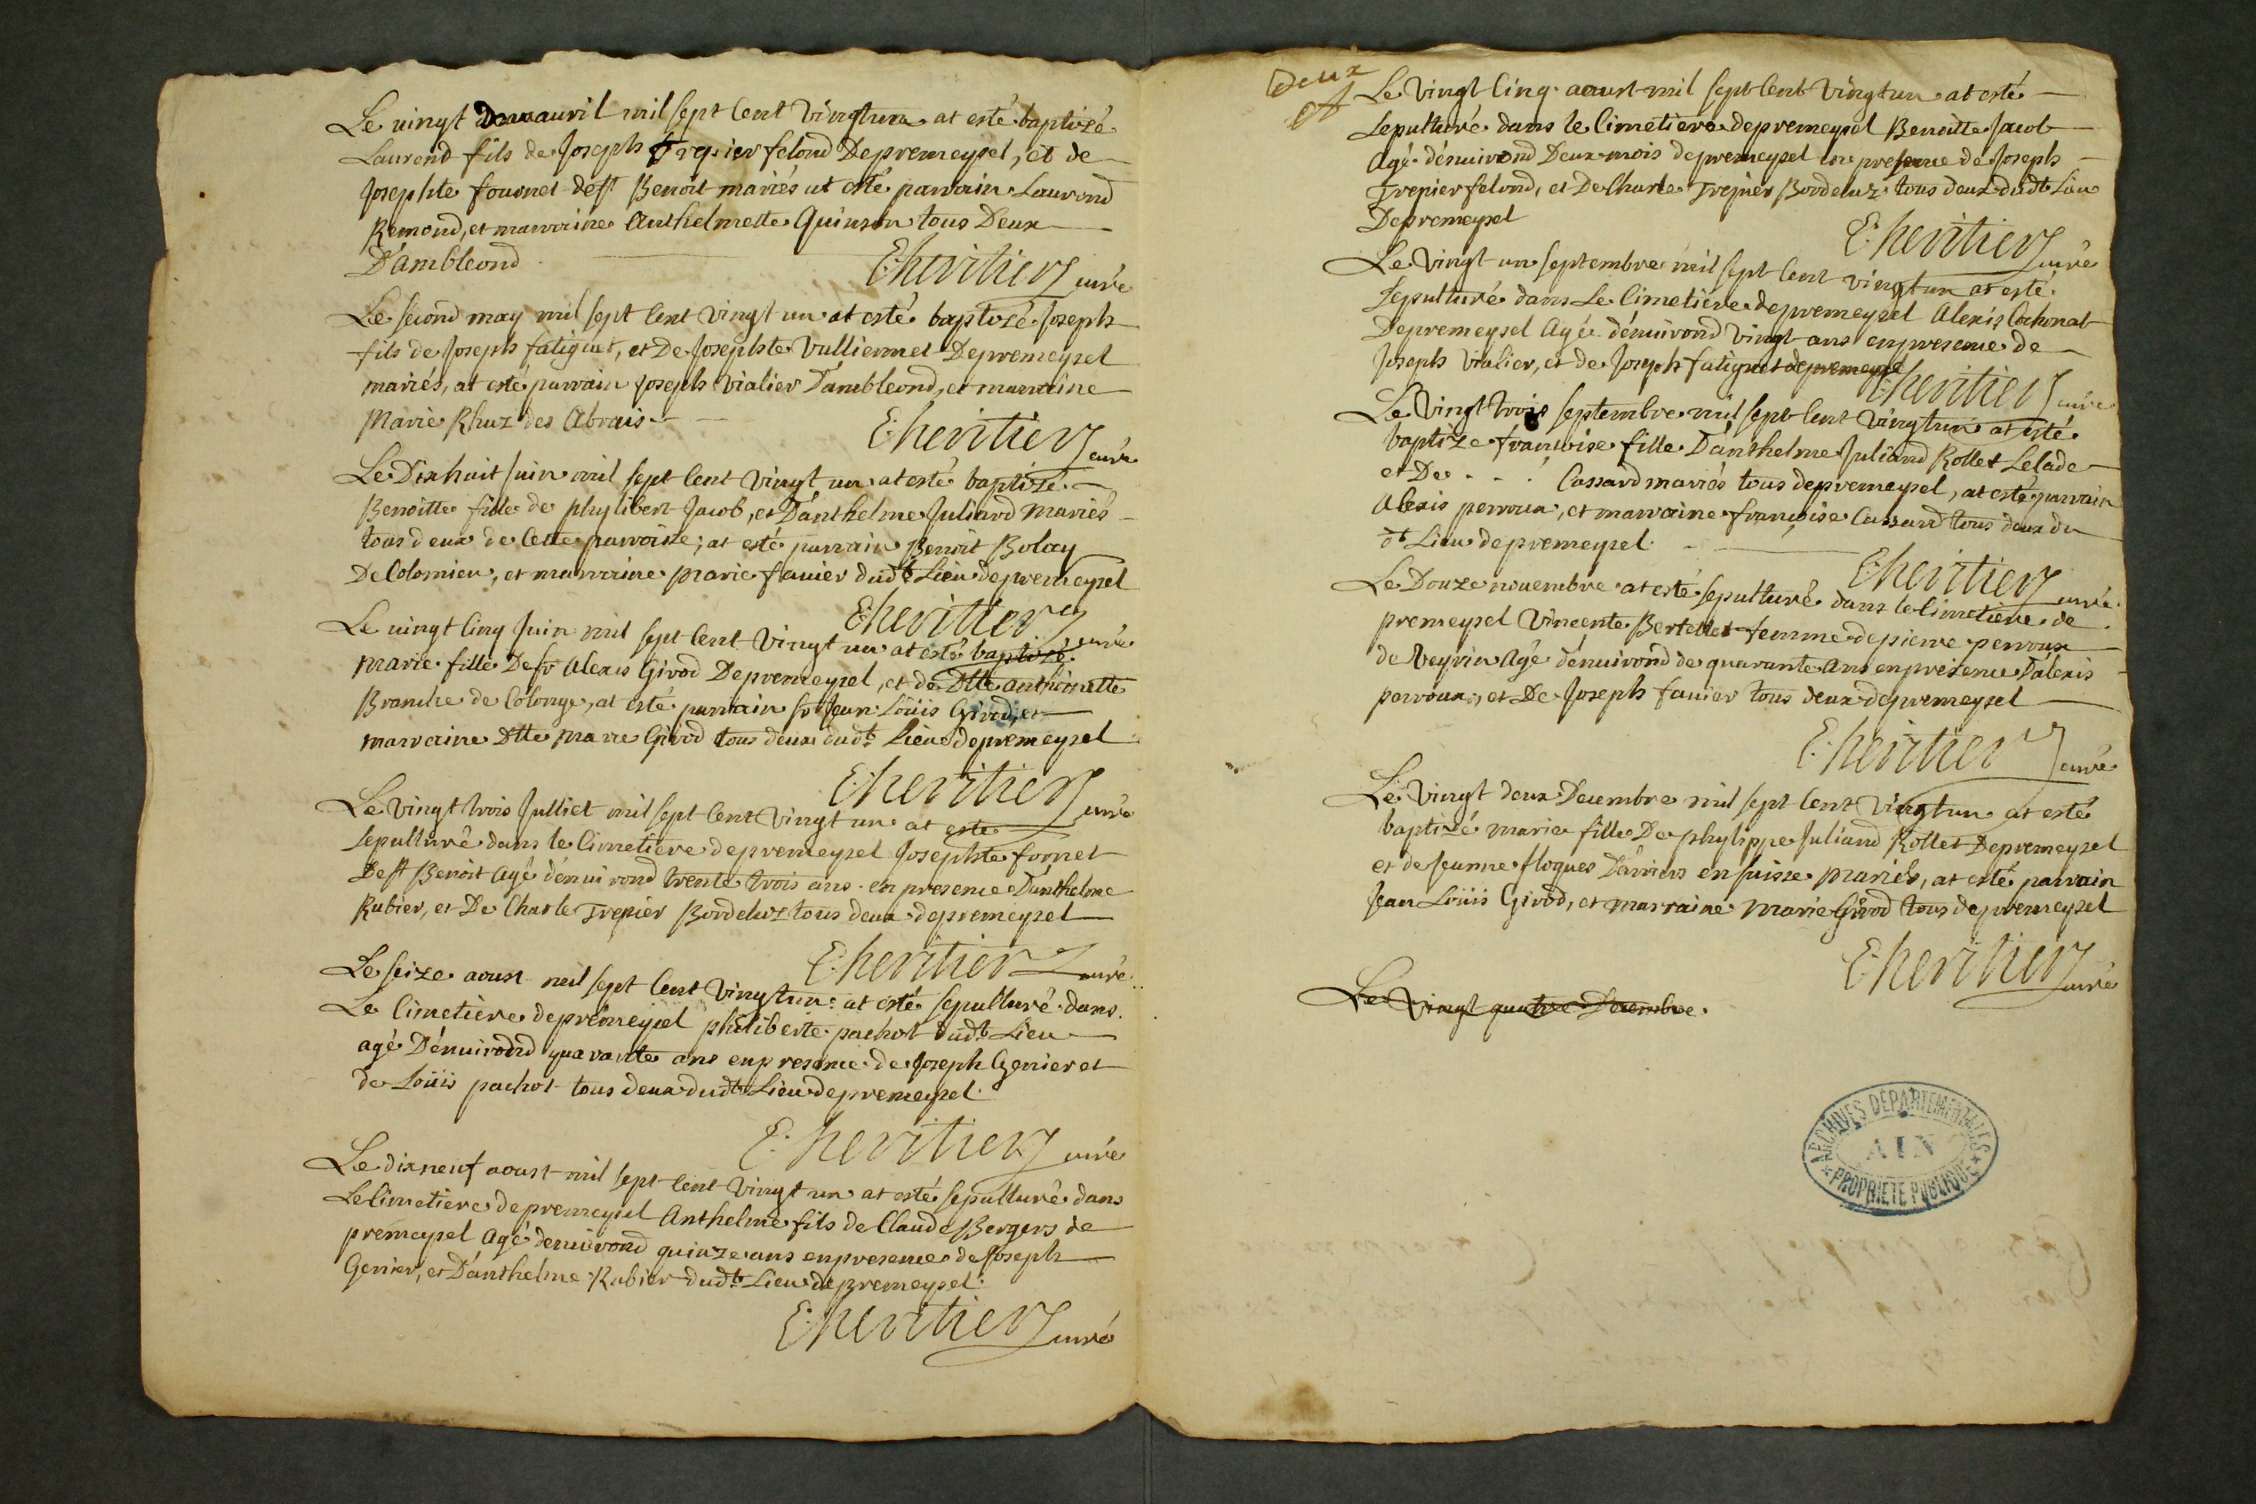 Le vingt deux auril mil sept Cent Vingtun at esté baptizé
Laurend fils de Joseph Trepier felond Depremeysel, et de
Josephte fournet dest Benoit mariés at esté parrain Laurend
Remond, et marraine Anthelmette Quinson tous Deux
D'ambleond
E: heritier curé
Le second may mil sept Cent Vingt un at esté baptizé Joseph
fils de Joseph fatiguet, et De Josephte Vulliermet Depremeysel
mariés, at esté parrain Joseph Vialier D'ambleond, et marraine
Marie Rhuz des Abrais
E: heritier curé
Le Dixhuit Juin mil sept Cent Vingt un at esté baptizé
Benoitte fille de phylibert Jacob, et D'anthelme Juliard Mariés
tous deux de Cette parroisse; at esté parrain Benoit Bolay
De Colomieu, et marraine Marie fauier dudt Lieu depremeysel
E: heritier curé
Le uingt Cinq Juin mil sept Cent Vingt un at esté baptizé
Marie fille De sr Alexis Girod Depremeysel, et de Dlle anthoinette
Branche de Colonge, at esté parrain sr Jean Loüis Girod, et
marraine Dlle Marie Girod tous deux dudt Lieu depremeysel
E: heritier curé
Le Vingt trois Julliet mil sept Cent Vingt un at esté
sepulturé dans le Cimetiere depremeysel Josephte fornet
Dest Benoit Agé d'enuirond trente trois ans en presence D'anthelme
Rubier, et De Charle Trepier Bordeluz tous deux depremeysel
E: heritier curé
Le seize aoust mil sept Cent Vingtun at esté sepulturé dans
Le Cimetiere depremeysel philiberte pachot dudt Lieu
agé D'enuirond quarante ans enpresence de Joseph Genier et
de Loüis pachot tous deux dudt Lieu depremeysel
E: heritier curé
Le dixneuf aoust mil sept Cent Vingt un at esté sepulturé dans
Le Cimetiere depremeysel Anthelme fils de Claude Bergers de
premeysel Agé denuirond quinze ans enpresence de Joseph
Genier, et D'anthelme Rubier dudt Lieu depremeysel
E: heritier curé
Deux
Le Vingt Cinq aoust mil sept Cent Vingtun at esté
Sepulturé dans le Cimetiere depremeysel Benoitte Jacob
Agé d'enuirond Deux mois depremeysel en presence de Joseph
Trepier felond, et De Charle Trepier Bordeluz tous deux dudt Lieu
Depremeysel
E: heritier curé
Le Vingt un septembre mil sept Cent vingtun at esté
Sepulturé dans Le Cimetiere depremeysel Alexis Cochonat
Depremeysel Agé d'enuirond Vingt ans enpresence de
Joseph Vialier, et de Joseph fatiguet depremeysel
E: heritier curé
Le Vingt trois septembre mil sept Cent Vingtun at esté
baptize francoise fille D'anthelme Juliand Rollet Lelade
et De . . . Cassard mariés tous depremeysel, at esté parrain
Alexis perroux, et marraine françoise Cassard tous deux du
dt Lieu depremeysel
E: heritier curé
Le Douze nouembre at esté sepulturé dans le Cimetiere de
premeysel Vincente Bertellet femme de pierre perroux
de Veyrin Agé d'enuirond de quarante ans enpresence D'alexis
perroux, et De Joseph fauier tous deux depremeysel
E: heritier curé
Le Vingt deux Decembre mil sept Cent Vingtun at esté
baptizé marie fille De phylippe Juliand Rollet Depremeysel
et de Jeanne floques en suisse Mariés, at esté parrain
Jean Loüis Girod, et marraine Marie Girod tous depremeysel
E: heritier curé
Le Vingt quatre Decembre
ARCHIVES DÉPARTEMENTALES
AIN
PROPRIÉTÉ PUBLIQUE